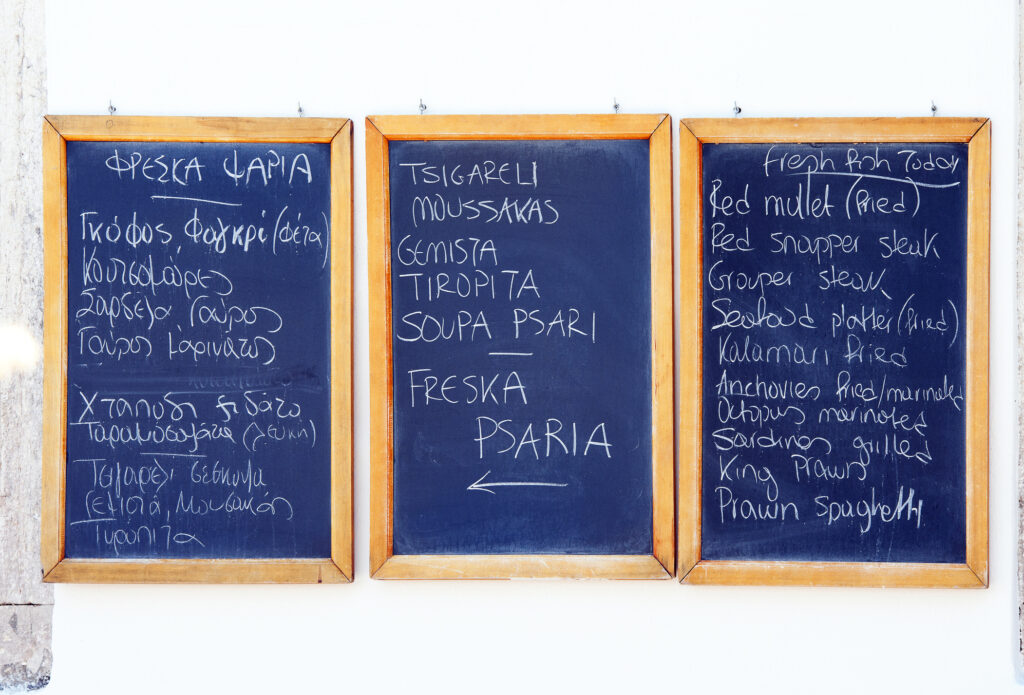 ΦΡΕΣΚΑ ΨΑΡΙΑ
Γκόφος Φαγκρί (φέτα)
Κουτσομούρες
Σαρδέλα Γαύρος
Γαύρος Μαρινάτος
Χταπόδι ξιδάτο
Ταραμοσαλάτα (λευκή)
Τσιγαρέλι σέσκουλα
Γεμιστά, Μουσακάς
Τυρόπιτα
TSIGARELI
MOUSSAKAS
GEMISTA
TIROPITA
SOUPA PSARI
FRESKA
PSARIA
fresh fish Today
Red mullet (fried)
Red snapper steak
Grouper steak
Seafood platter (fried)
Kalamari fried
Anchovies fried/marinated
Octopus marinated
Sardines grilled
King Prawn
Prawn Spaghetti